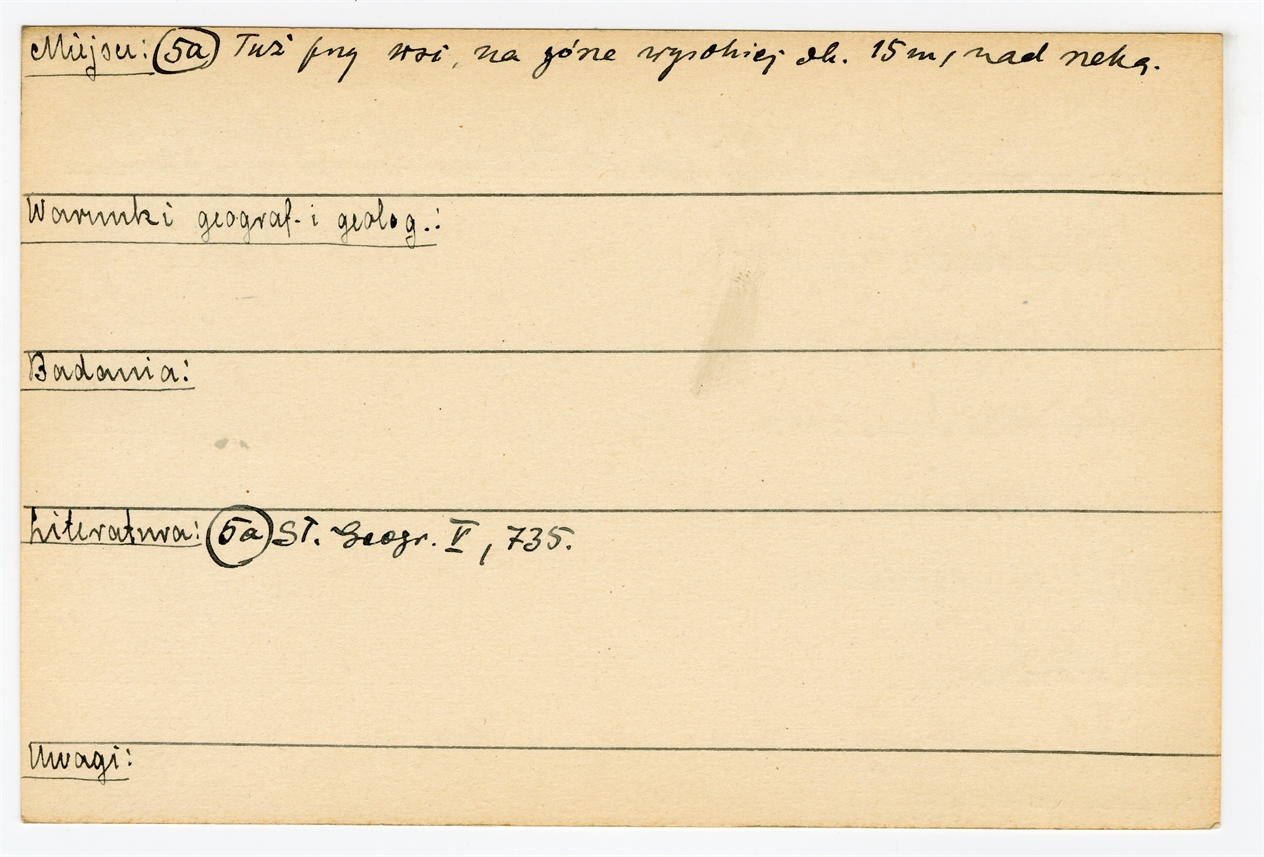 Miejsce: (5a) Tuż przy wsi, na górze wysokiej ok. 15 m, nad rzeką.
Warunki geograf. i geolog.:
Badania:
Literatura: (5a) Sł. Geogr. V, 735.
Uwagi: